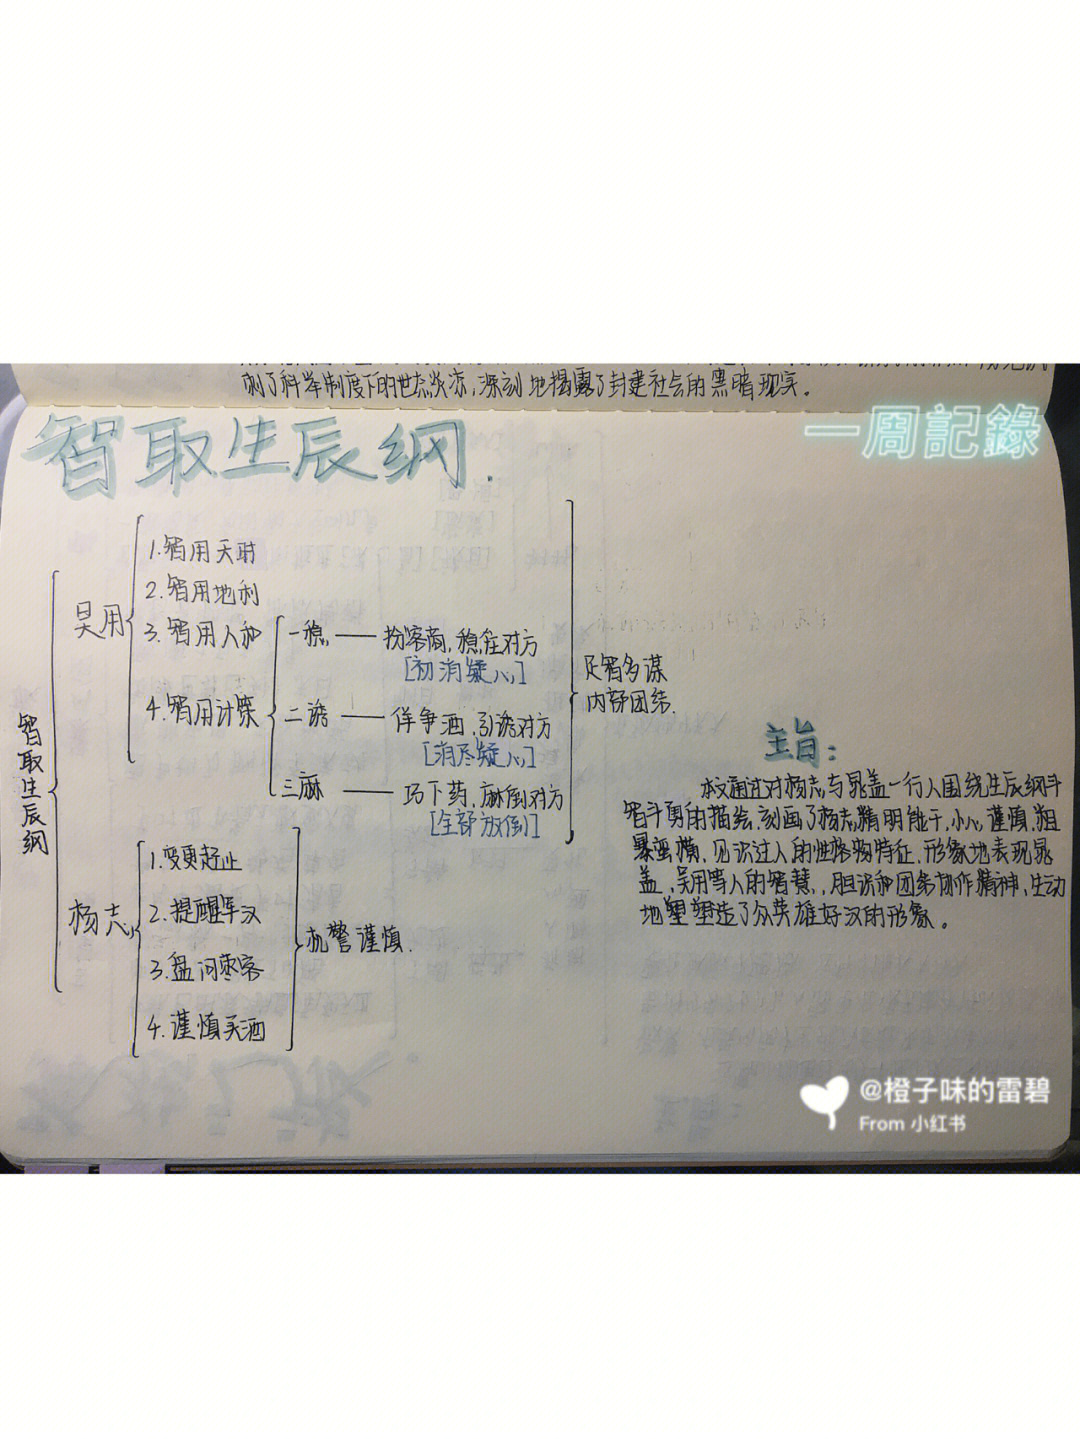 刺了科举制度下的世态炎凉,深刻地揭露了封建社会的黑暗现实。
智取生辰纲.
一周記錄
智取生辰纲
吴用
1.智用天时
2.智用地利
3.智用人和
4.智用计策
一稳 —— 扮客商,稳住对方
[初消疑心]
二诱 —— 佯争酒,引诱对方
[消尽疑心]
三麻 —— 巧下药,麻倒对方
[全部放倒]
足智多谋
内部团结.
杨志
1.变更起止
2.提醒军汉
3.盘问枣客
4.谨慎买酒
机警谨慎.
主旨:
本文通过对杨志与晁盖一行人围绕生辰纲斗
智斗勇的描绘,刻画了杨志精明能干,小心谨慎,粗
暴蛮横,见识过人的性格特征,形象地表现晁
盖,吴用等人的智慧,胆识和团结协作精神,生动
地塑塑造了众英雄好汉的形象。
@橙子味的雷碧
From 小红书